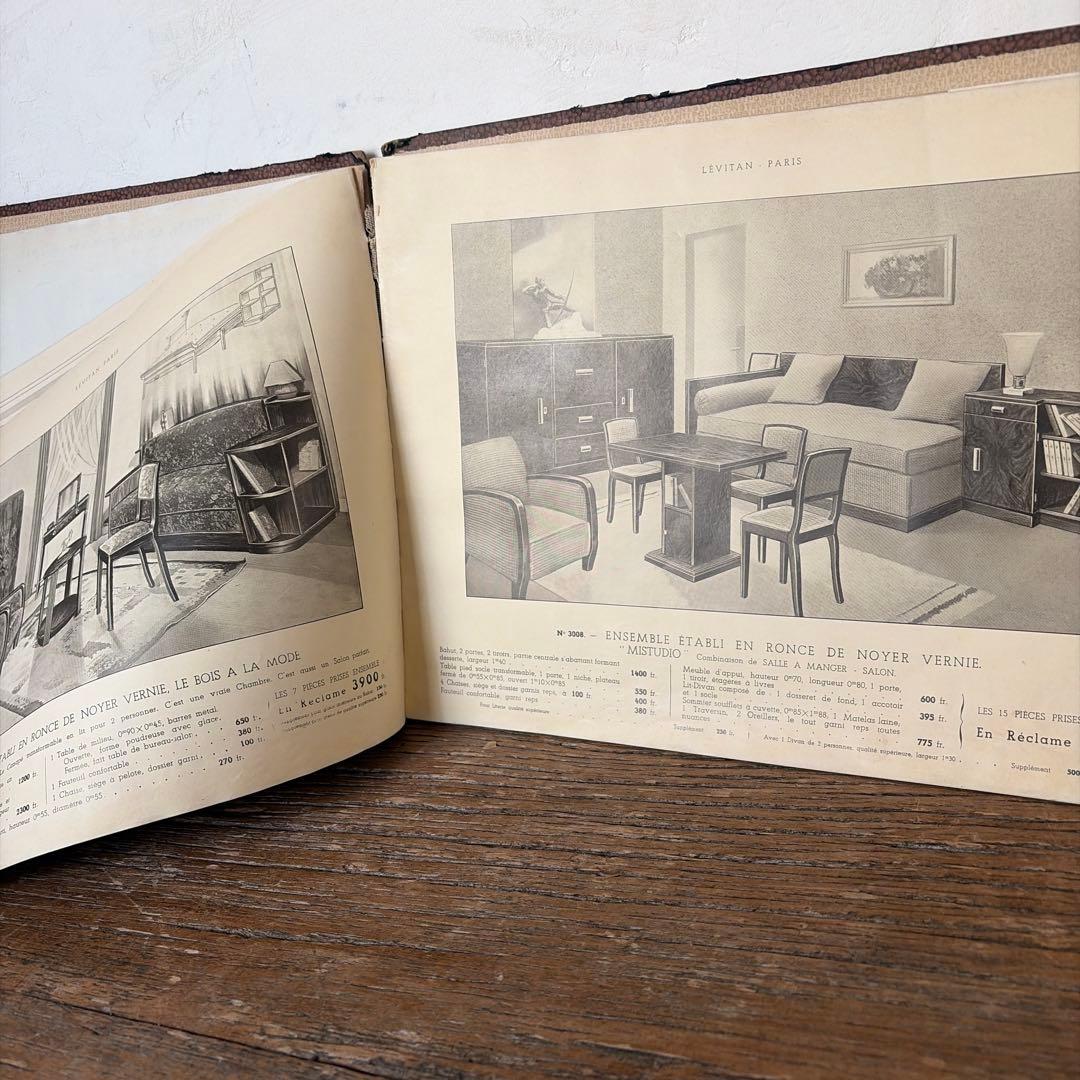 LÉVITAN PARIS
TABLI EN RONCE DE NOYER VERNIE, LE BOIS A LA MODE
Canapé transformable en lit pour 2 personnes. C'est une vraie Chambre. C'est aussi un Salon parfait.
1200 fr.
2300 fr.
1 Table de milieu, 0ᵐ90×0ᵐ45, barres métal
Ouverte, forme poudreuse avec glace.
Fermée, fait table de bureau-salon
650 fr.
1 Fauteuil confortable
380 fr.
1 Chaise, siège à pelote, dossier garni
100 fr.
hauteur 0ᵐ55, diamètre 0ᵐ55
270 fr.
LES 7 PIÈCES PRISES ENSEMBLE
En Réclame 3900 fr.
LÉVITAN - PARIS
Nº 3008. — ENSEMBLE ÉTABLI EN RONCE DE NOYER VERNIE.
"MISTUDIO" Combinaison de SALLE A MANGER - SALON.
Bahut, 2 portes, 2 tiroirs, partie centrale s'abattant formant
desserte, largeur 1ᵐ40
1400 fr.
Table pied socle transformable, 1 porte, 1 niche, plateau
fermé de 0ᵐ55×0ᵐ85, ouvert 1ᵐ10×0ᵐ85
550 fr.
4 Chaises, siège et dossier garnis reps, à 100 fr.
400 fr.
Fauteuil confortable, garni reps
380 fr.
Pour Literie qualité supérieure
Supplément 250 fr.
Meuble d'appui, hauteur 0ᵐ70, longueur 0ᵐ80, 1 porte,
1 tiroir, étagères à livres
600 fr.
Lit-Divan composé de : 1 dosseret de fond, 1 accotoir
et 1 socle
395 fr.
Sommier soufflets à cuvette, 0ᵐ85×1ᵐ88, 1 Matelas laine,
1 Traversin, 2 Oreillers, le tout garni reps toutes
nuances
775 fr.
Avec 1 Divan de 2 personnes, qualité supérieure, largeur 1ᵐ30
Supplément 500
LES 15 PIÈCES PRISES
En Réclame